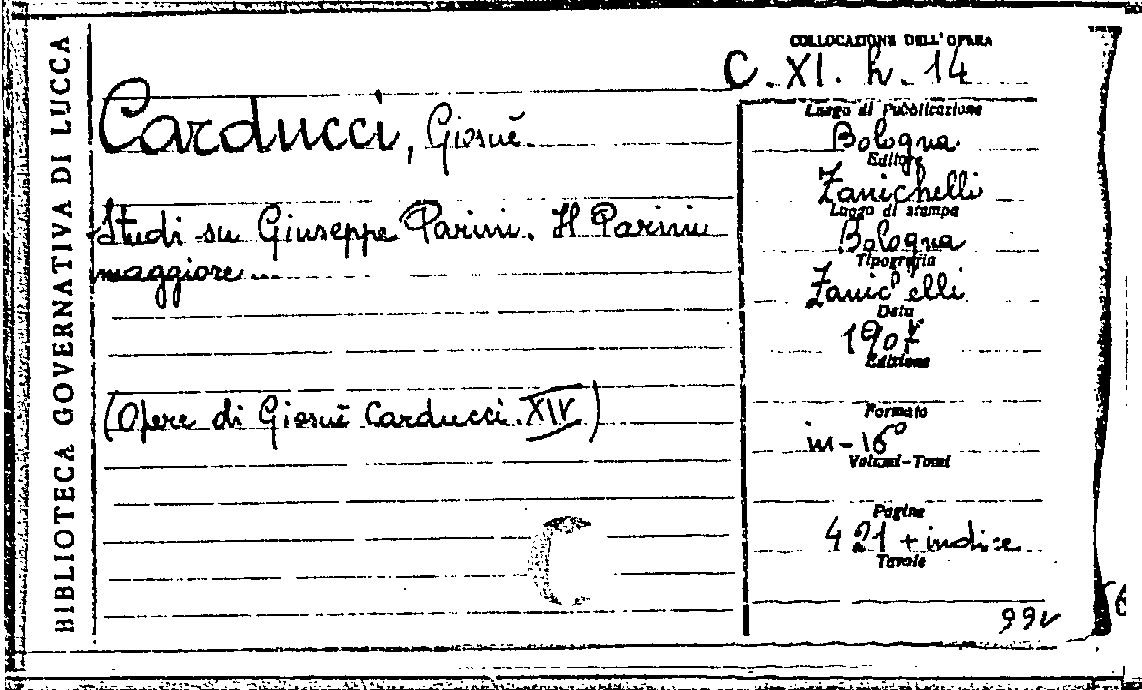 BIBLIOTECA GOVERNATIVA DI LUCCA
COLLOCAZIONE DELL'OPERA
C. XI. h. 14
Carducci, Giosuè.
Studi su Giuseppe Parini. Il Parini
maggiore...
(Opere di Giosuè Carducci. XIV)
Luogo di Pubblicazione
Bologna
Editore
Zanichelli
Luogo di stampa
Bologna
Tipografia
Zanichelli
Data
1907
Edizione
Formato
in-16°
Volumi-Tomi
Pagine
421 + indice
Tavole